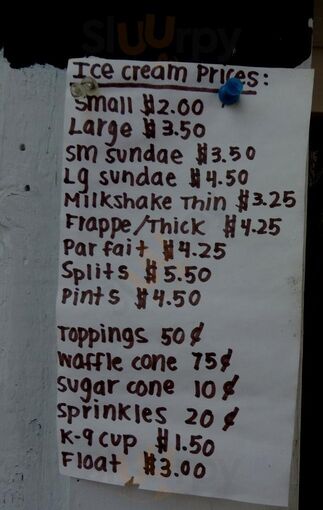 Sluurpy
Ice cream Prices:
Small $2.00
Large $3.50
Sm sundae $3.50
Lg sundae $4.50
Milkshake Thin $3.25
Frappe/Thick $4.25
Parfait $4.25
Splits $5.50
Pints $4.50
Toppings 50¢
Waffle cone 75¢
Sugar cone 10¢
Sprinkles 20¢
K-9 cup $1.50
Float $3.00